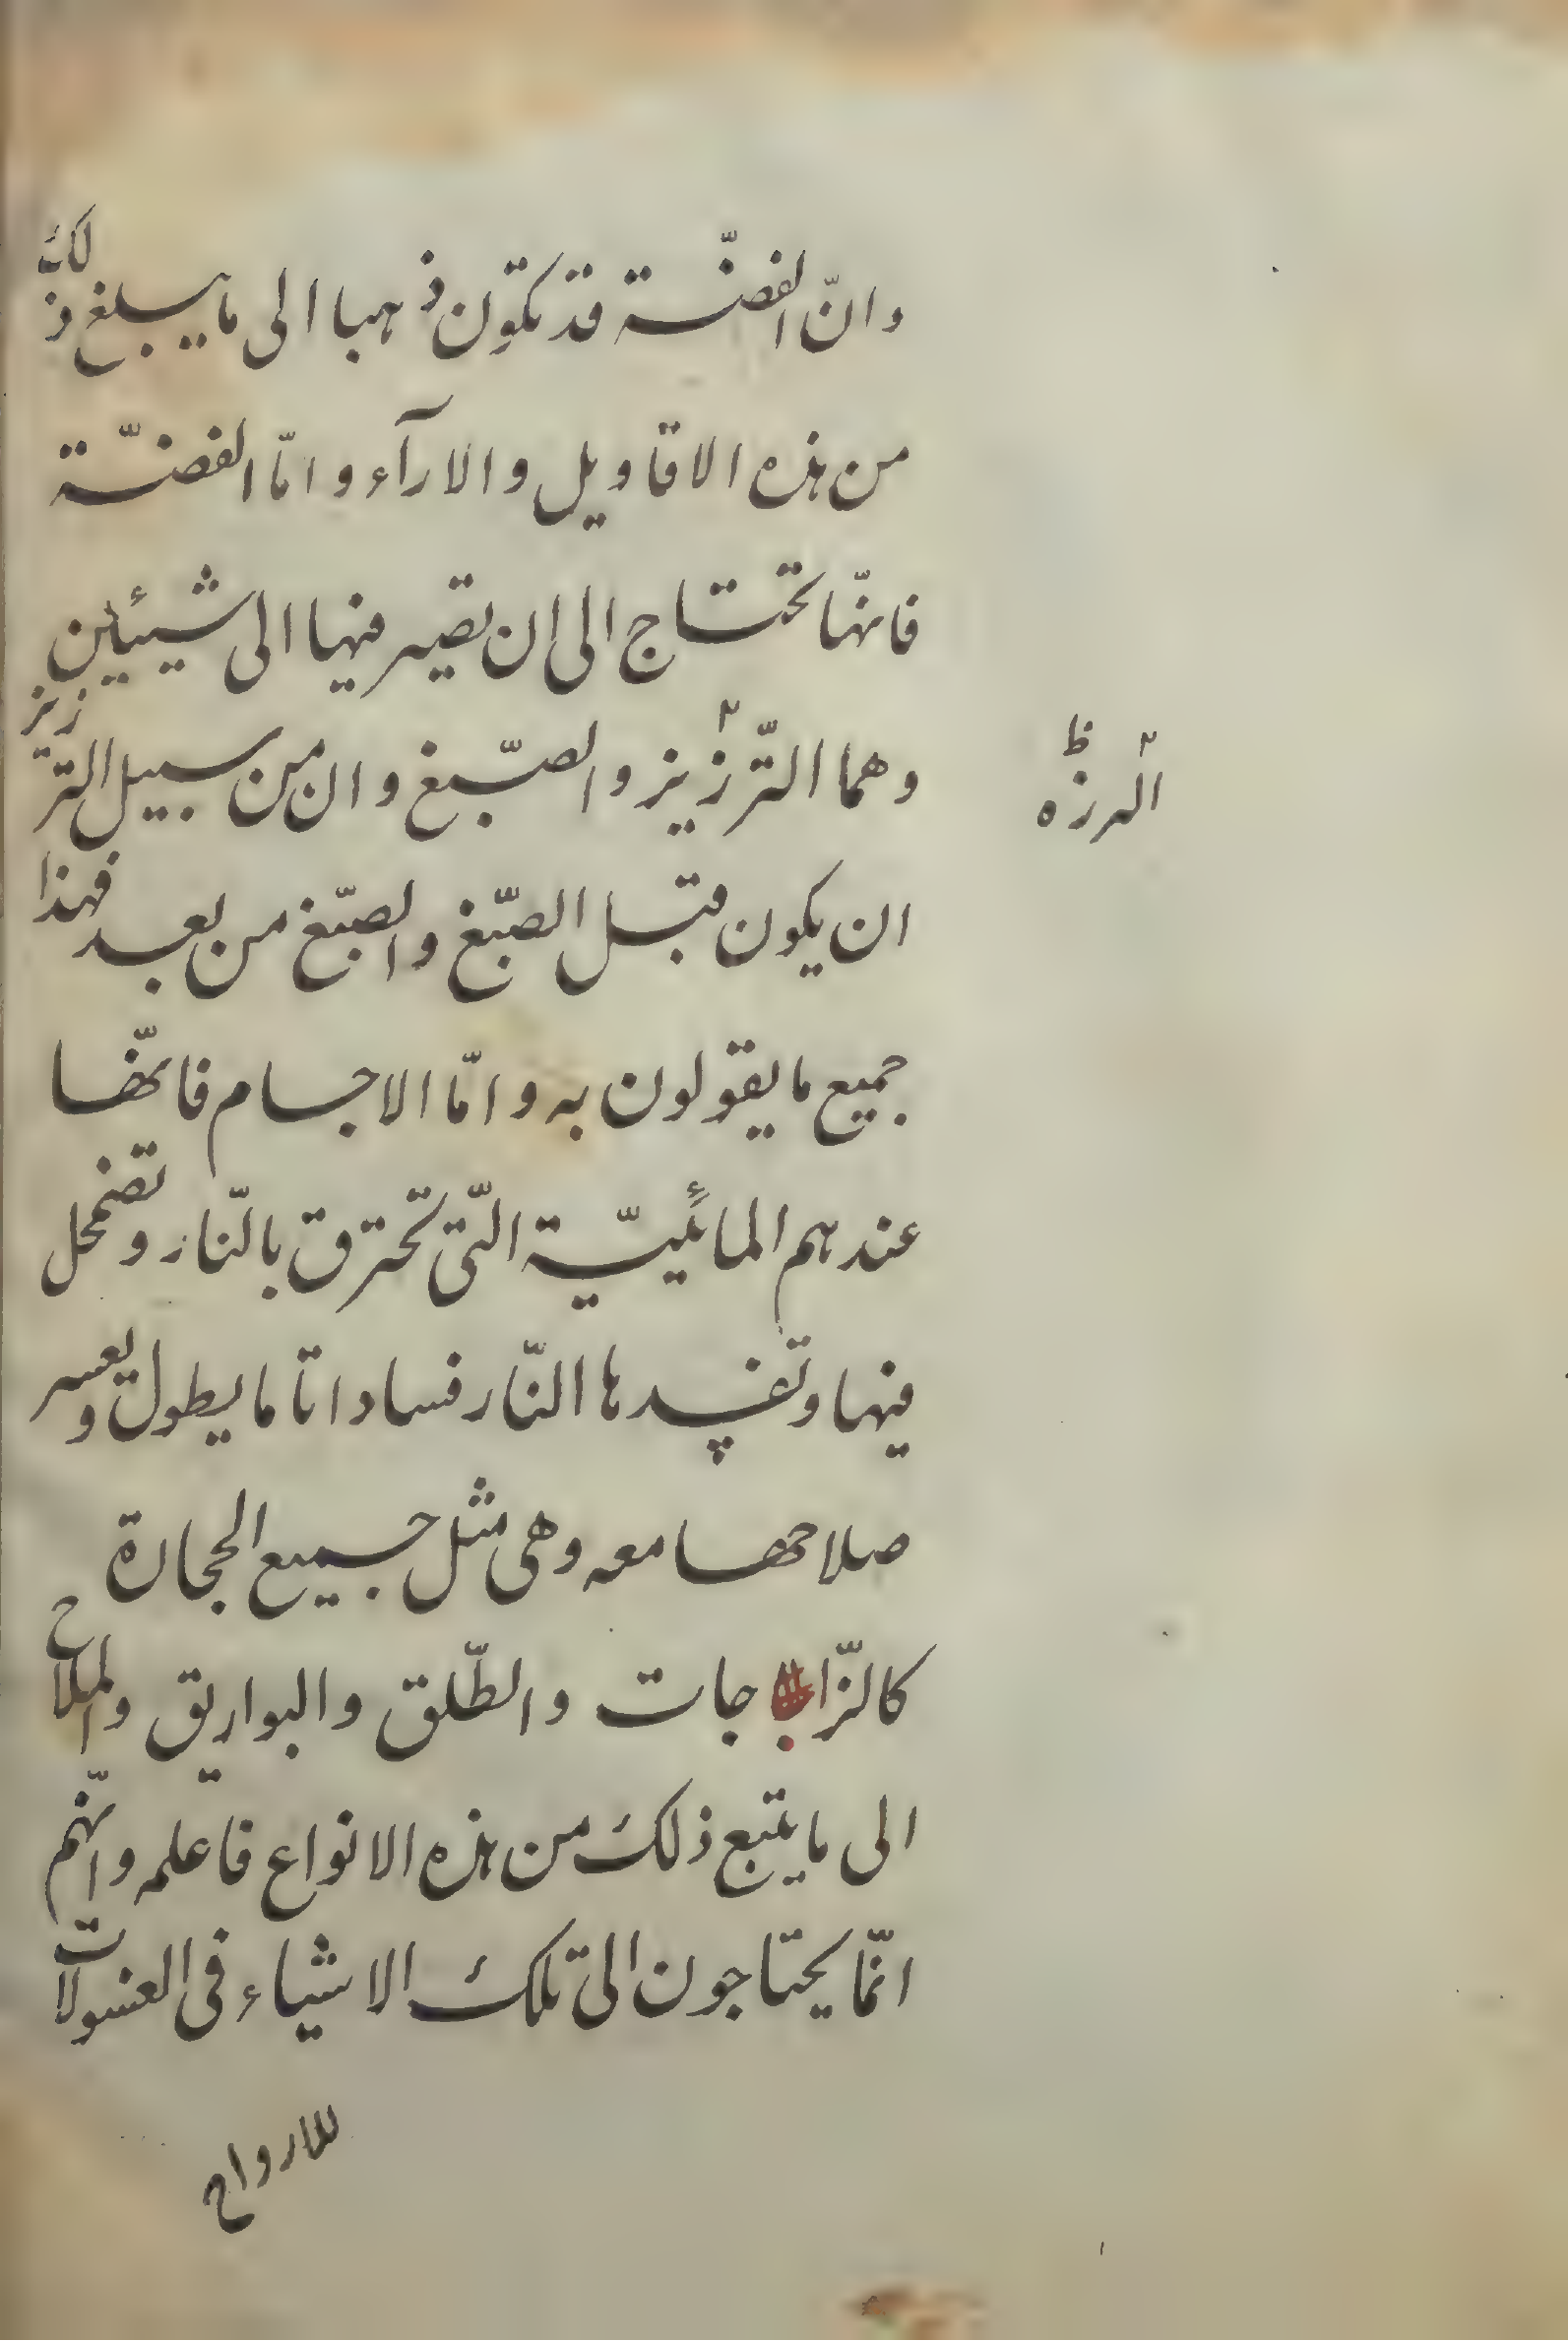 وانّ الفضّة قد تكوّن ذهبا الى ما يبلغ ذلك
من هذه الاقاويل والارآء وامّا الفضّة
فانهّا تحتاج الى ان تصير فيها الى شيئين
وهما التّرزيز والصّبغ وان من سبيل الترزيز
الرزه ظ
ان يكون قبل الصّبغ والصّبغ من بعد فهذا
جميع ما يقولون به وامّا الاجسام فانهّا
عندهم المائيّة الّتى تحترق بالنّار وتضمحل
فيها وتفسدها النّار فسادا تا ما يطول ويعسر
صلاحها معه وهى مثل جميع الحجارة
كالزّاجات والطّلق والبواريق والملاح
الى ما يتبع ذلك من هذه الانواع فاعلمه وانهّم
انمّا يحتاجون الى تلك الاشياء فى الغسولات
للارواح